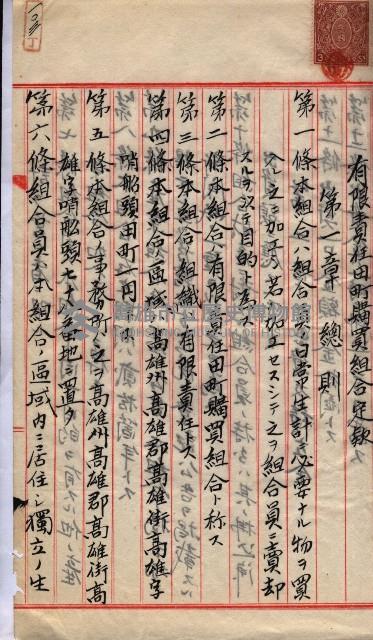 有限責任田町購買組合定款
第一章 總則
第一條本組合ハ組合員ノ日常生計ニ必要ナル物ヲ買
入レ之ニ加工シ若ハ加工セスシテ之ヲ組合員ニ賣却
スルヲ以テ目的トナス
第二條本組合ハ有限責任田町購買組合ト称ス
第三條本組合ノ組織ハ有限責任トス
第四條本組合ノ區域ハ高雄州高雄郡高雄街高雄字
哨船頭田町一円トス
第五條本組合ノ事務所ハ之ヲ高雄州高雄郡高雄街高
雄字哨船頭七十八番地ニ置ク
第六條組合員ハ本組合ノ區域内ニ居住シ獨立ノ生